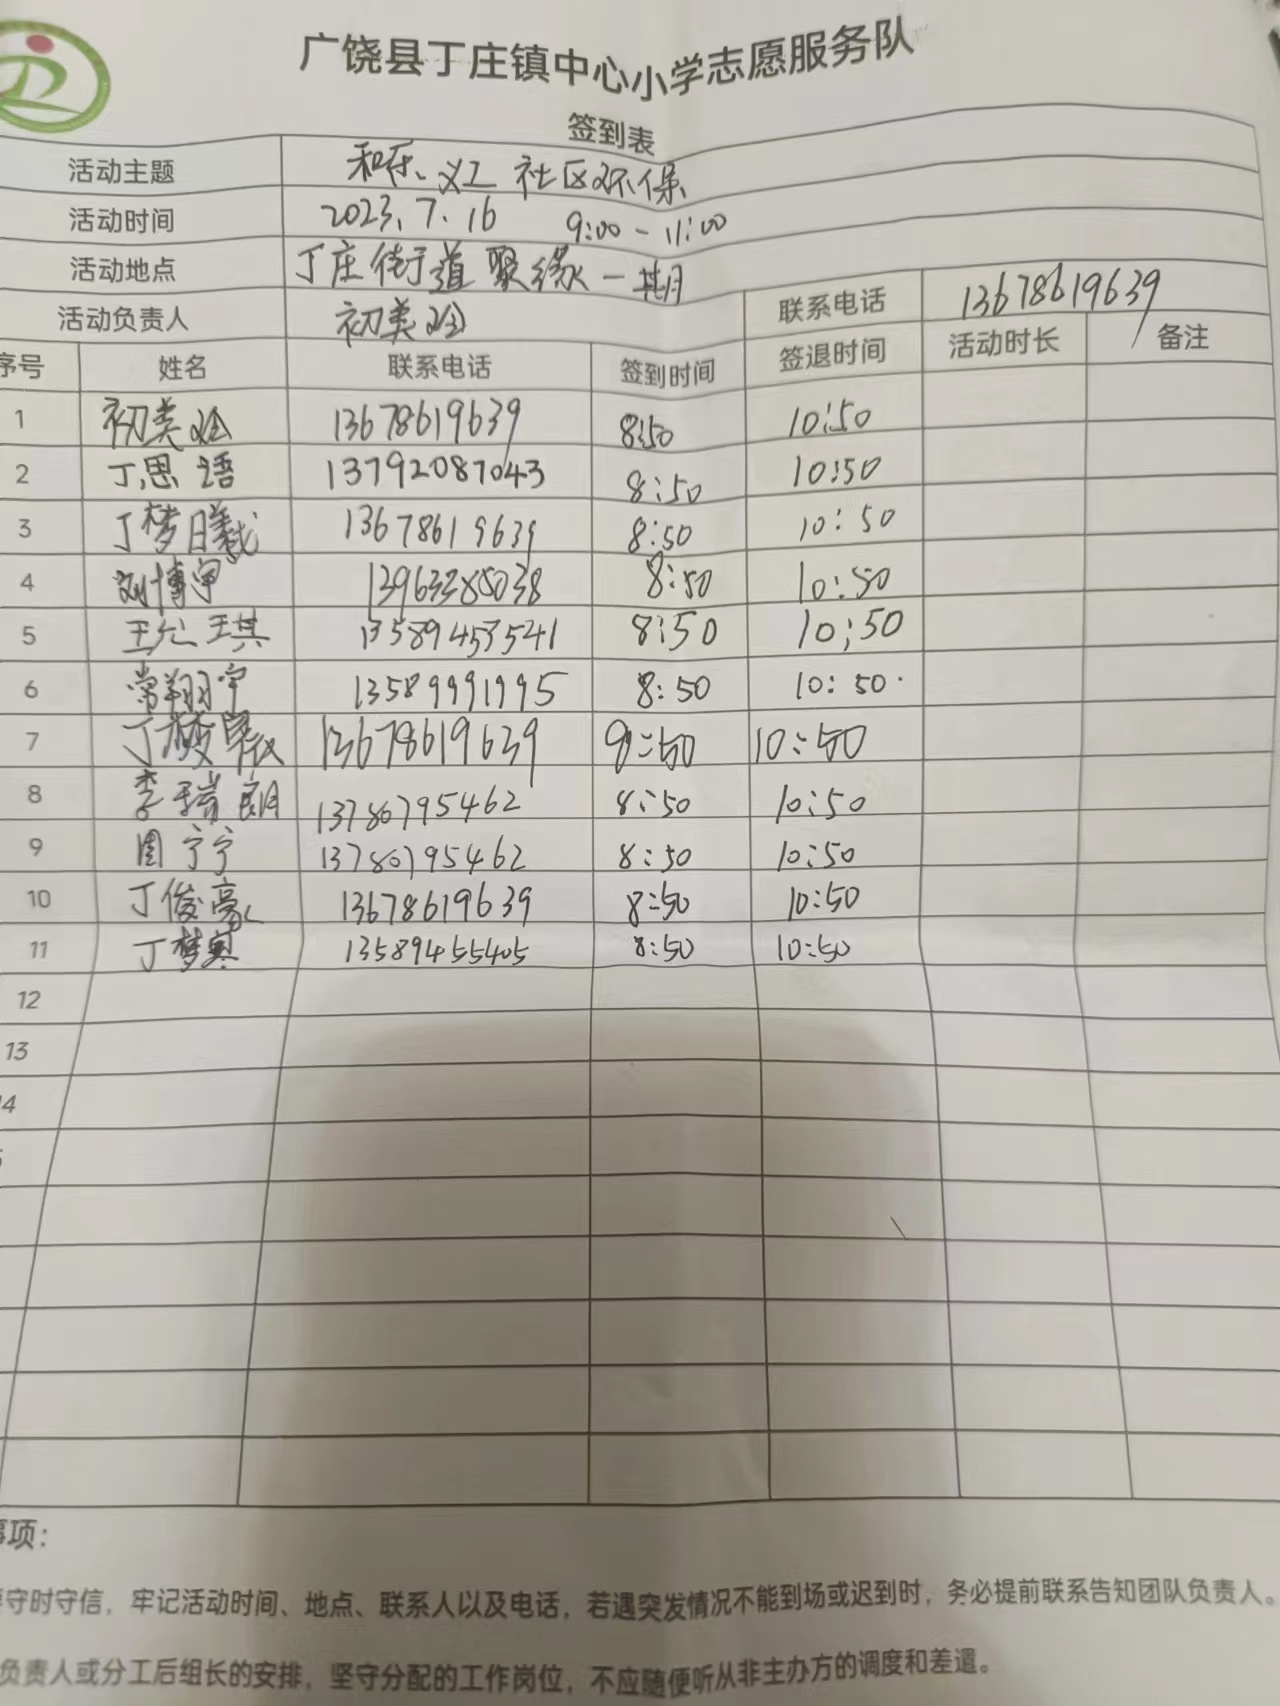 广饶县丁庄镇中心小学志愿服务队
签到表
活动主题 和乐义工 社区环保
活动时间 2023.7.16 9:00-11:00
活动地点 丁庄街道聚缘一期
活动负责人 初美玲 联系电话 13678619639
序号 姓名 联系电话 签到时间 签退时间 活动时长 备注
1 初美玲 13678619639 8:50 10:50
2 丁思语 13792087043 8:50 10:50
3 丁梦曦 13678619639 8:50 10:50
4 刘博宇 13963285038 8:50 10:50
5 王允琪 13589453541 8:50 10:50
6 常翔宇 13589991995 8:50 10:50.
7 丁梦 13678619639 8:50 10:50
8 李瑞朗 13780795462 8:50 10:50
9 周宁宁 13780795462 8:50 10:50
10 丁俊豪 13678619639 8:50 10:50
11 丁梦 13589455405 8:50 10:50
12
13
14
事项：
守时守信，牢记活动时间、地点、联系人以及电话，若遇突发情况不能到场或迟到时，务必提前联系告知团队负责人。
负责人或分工后组长的安排，坚守分配的工作岗位，不应随便听从非主办方的调度和差遣。